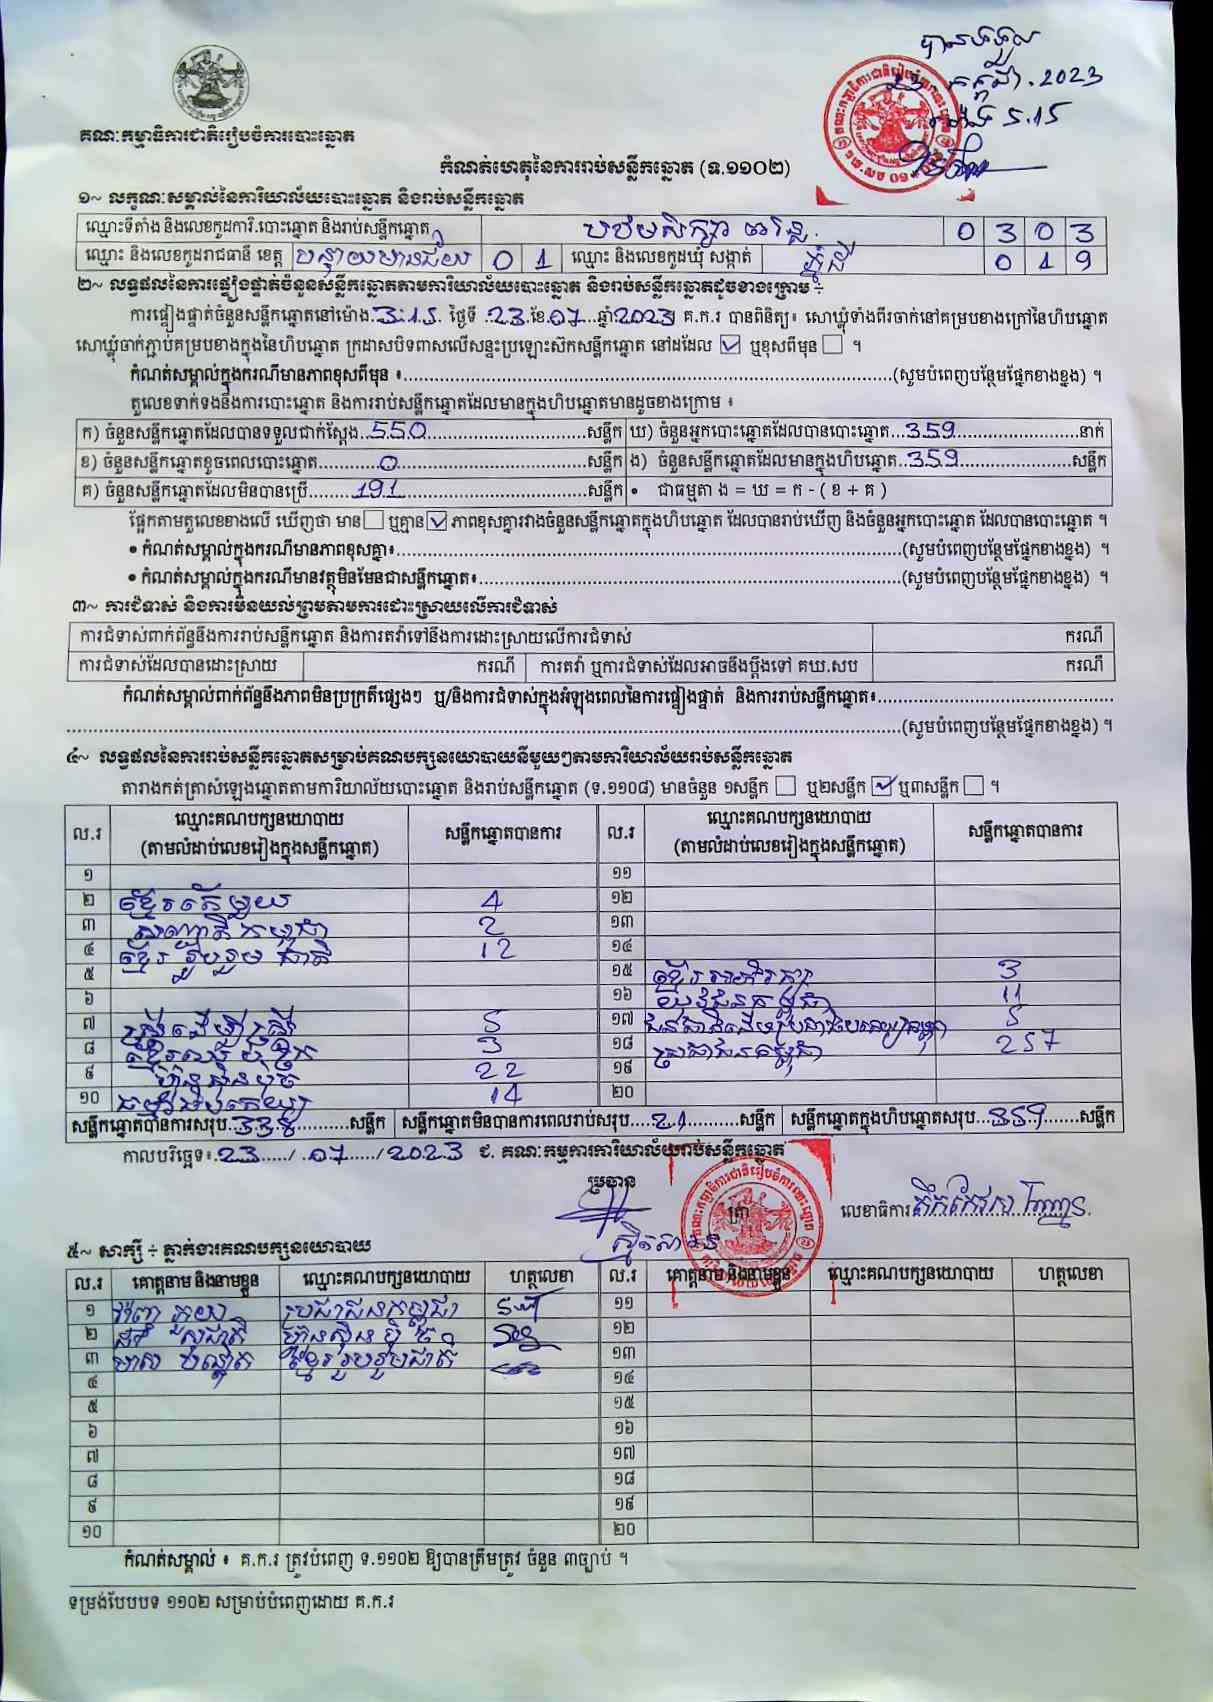 បានទទួល
23 កក្កដា.2023
ម៉ោង 5.15
គណៈកម្មាធិការជាតិរៀបចំការបោះឆ្នោត
កំណត់ហេតុនៃការរាប់សន្លឹកឆ្នោត (ទ.១១០២)
១~ លក្ខណៈសម្គាល់នៃការិយាល័យបោះឆ្នោត និងរាប់សន្លឹកឆ្នោត
ឈ្មោះទីតាំង និងលេខកូដការិ.បោះឆ្នោត និងរាប់សន្លឹកឆ្នោត បឋមសិក្សា 0 3 0 3
ឈ្មោះ និងលេខកូដរាជធានី ខេត្ត បន្ទាយមានជ័យ 0 1 ឈ្មោះ និងលេខកូដឃុំ សង្កាត់ 0 1 9
២~ លទ្ធផលនៃការផ្ទៀងផ្ទាត់ចំនួនសន្លឹកឆ្នោតតាមការិយាល័យបោះឆ្នោត និងរាប់សន្លឹកឆ្នោតដូចខាងក្រោម ÷
ការផ្ទៀងផ្ទាត់ចំនួនសន្លឹកឆ្នោតនៅម៉ោង.3:15. ថ្ងៃទី .23.ខែ.07...ឆ្នាំ2023 គ.ក.រ បានពិនិត្យ៖ សោឃ្លុំទាំងពីរចាក់នៅគម្របខាងក្រៅនៃហិបឆ្នោត
សោឃ្លុំចាក់ភ្ជាប់គម្របខាងក្នុងនៃហិបឆ្នោត ក្រដាសបិទពាសលើសន្ទះប្រឡោះស៊កសន្លឹកឆ្នោត នៅដដែល ☑ ឬខុសពីមុន ☐ ។
កំណត់សម្គាល់ក្នុងករណីមានភាពខុសពីមុន ៖......(សូមបំពេញបន្ថែមផ្នែកខាងខ្នង) ។
តួលេខទាក់ទងនឹងការបោះឆ្នោត និងការរាប់សន្លឹកឆ្នោតដែលមានក្នុងហិបឆ្នោតមានដូចខាងក្រោម ៖
ក) ចំនួនសន្លឹកឆ្នោតដែលបានទទួលជាក់ស្តែង..550......សន្លឹក ឃ) ចំនួនអ្នកបោះឆ្នោតដែលបានបោះឆ្នោត...359......នាក់
ខ) ចំនួនសន្លឹកឆ្នោតខូចពេលបោះឆ្នោត......0......សន្លឹក ង) ចំនួនសន្លឹកឆ្នោតដែលមានក្នុងហិបឆ្នោត..359......សន្លឹក
គ) ចំនួនសន្លឹកឆ្នោតដែលមិនបានប្រើ......191......សន្លឹក • ជាធម្មតា ង = ឃ = ក - ( ខ + គ )
ផ្អែកតាមតួលេខខាងលើ ឃើញថា មាន ☐ ឬគ្មាន ☑ ភាពខុសគ្នារវាងចំនួនសន្លឹកឆ្នោតក្នុងហិបឆ្នោត ដែលបានរាប់ឃើញ និងចំនួនអ្នកបោះឆ្នោត ដែលបានបោះឆ្នោត ។
• កំណត់សម្គាល់ក្នុងករណីមានភាពខុសគ្នា៖......(សូមបំពេញបន្ថែមផ្នែកខាងខ្នង) ។
• កំណត់សម្គាល់ក្នុងករណីមានវត្ថុមិនមែនជាសន្លឹកឆ្នោត៖......(សូមបំពេញបន្ថែមផ្នែកខាងខ្នង) ។
៣~ ការជំទាស់ និងការមិនយល់ព្រមតាមការដោះស្រាយលើការជំទាស់
ការជំទាស់ពាក់ព័ន្ធនឹងការរាប់សន្លឹកឆ្នោត និងការតវ៉ាទៅនឹងការដោះស្រាយលើការជំទាស់ ករណី
ការជំទាស់ដែលបានដោះស្រាយ ករណី ការតវ៉ា ឬការជំទាស់ដែលអាចនឹងប្តឹងទៅ គឃ.សប ករណី
កំណត់សម្គាល់ពាក់ព័ន្ធនឹងភាពមិនប្រក្រតីផ្សេងៗ ឬ/និងការជំទាស់ក្នុងអំឡុងពេលនៃការផ្ទៀងផ្ទាត់ និងការរាប់សន្លឹកឆ្នោត៖......
......(សូមបំពេញបន្ថែមផ្នែកខាងខ្នង) ។
៤~ លទ្ធផលនៃការរាប់សន្លឹកឆ្នោតសម្រាប់គណបក្សនយោបាយនីមួយៗតាមការិយាល័យរាប់សន្លឹកឆ្នោត
តារាងកត់ត្រាសំឡេងឆ្នោតតាមការិយាល័យបោះឆ្នោត និងរាប់សន្លឹកឆ្នោត (ទ.១១០៨) មានចំនួន ១សន្លឹក ☐ ឬ២សន្លឹក ☑ ឬ៣សន្លឹក ☐ ។
ល.រ ឈ្មោះគណបក្សនយោបាយ (តាមលំដាប់លេខរៀងក្នុងសន្លឹកឆ្នោត) សន្លឹកឆ្នោតបានការ ល.រ ឈ្មោះគណបក្សនយោបាយ (តាមលំដាប់លេខរៀងក្នុងសន្លឹកឆ្នោត) សន្លឹកឆ្នោតបានការ
១ ១១
២ ខ្មែរតែមួយ 4 ១២
៣ សញ្ជាតិកម្ពុជា 2 ១៣
៤ ខ្មែររួបរួមជាតិ 12 ១៤
៥ ១៥ ខ្មែរអភិរក្ស 3
៦ ១៦ យុវជនកម្ពុជា 11
៧ ស្ត្រីដើម្បីស្ត្រី 5 ១៧ ជនជាតិដើមប្រជាធិបតេយ្យកម្ពុជា 5
៨ 3 ១៨ ប្រជាជនកម្ពុជា 257
៩ ហ៊្វុនស៊ិនប៉ិច 22 ១៩
១០ ធម្មាធិបតេយ្យ 14 ២០
សន្លឹកឆ្នោតបានការសរុប..338......សន្លឹក សន្លឹកឆ្នោតមិនបានការពេលរាប់សរុប....21......សន្លឹក សន្លឹកឆ្នោតក្នុងហិបឆ្នោតសរុប...359......សន្លឹក
កាលបរិច្ឆេទ៖.23...../..07...../2023 ជ. គណៈកម្មការការិយាល័យរាប់សន្លឹកឆ្នោត
ប្រធាន ត្រា លេខាធិការ
៥~ សាក្សី ÷ ភ្នាក់ងារគណបក្សនយោបាយ
ល.រ គោត្តនាម និងនាមខ្លួន ឈ្មោះគណបក្សនយោបាយ ហត្ថលេខា ល.រ គោត្តនាម និងនាមខ្លួន ឈ្មោះគណបក្សនយោបាយ ហត្ថលេខា
១ ប្រជាជនកម្ពុជា ១១
២ សុជាតិ ហ៊្វុនស៊ិនប៉ិច ១២
៣ មាស បណ្ឌិត ខ្មែររួបរួមជាតិ ១៣
៤ ១៤
៥ ១៥
៦ ១៦
៧ ១៧
៨ ១៨
៩ ១៩
១០ ២០
កំណត់សម្គាល់ ៖ គ.ក.រ ត្រូវបំពេញ ទ.១១០២ ឱ្យបានត្រឹមត្រូវ ចំនួន ៣ច្បាប់ ។
ទម្រង់បែបបទ ១១០២ សម្រាប់បំពេញដោយ គ.ក.រ